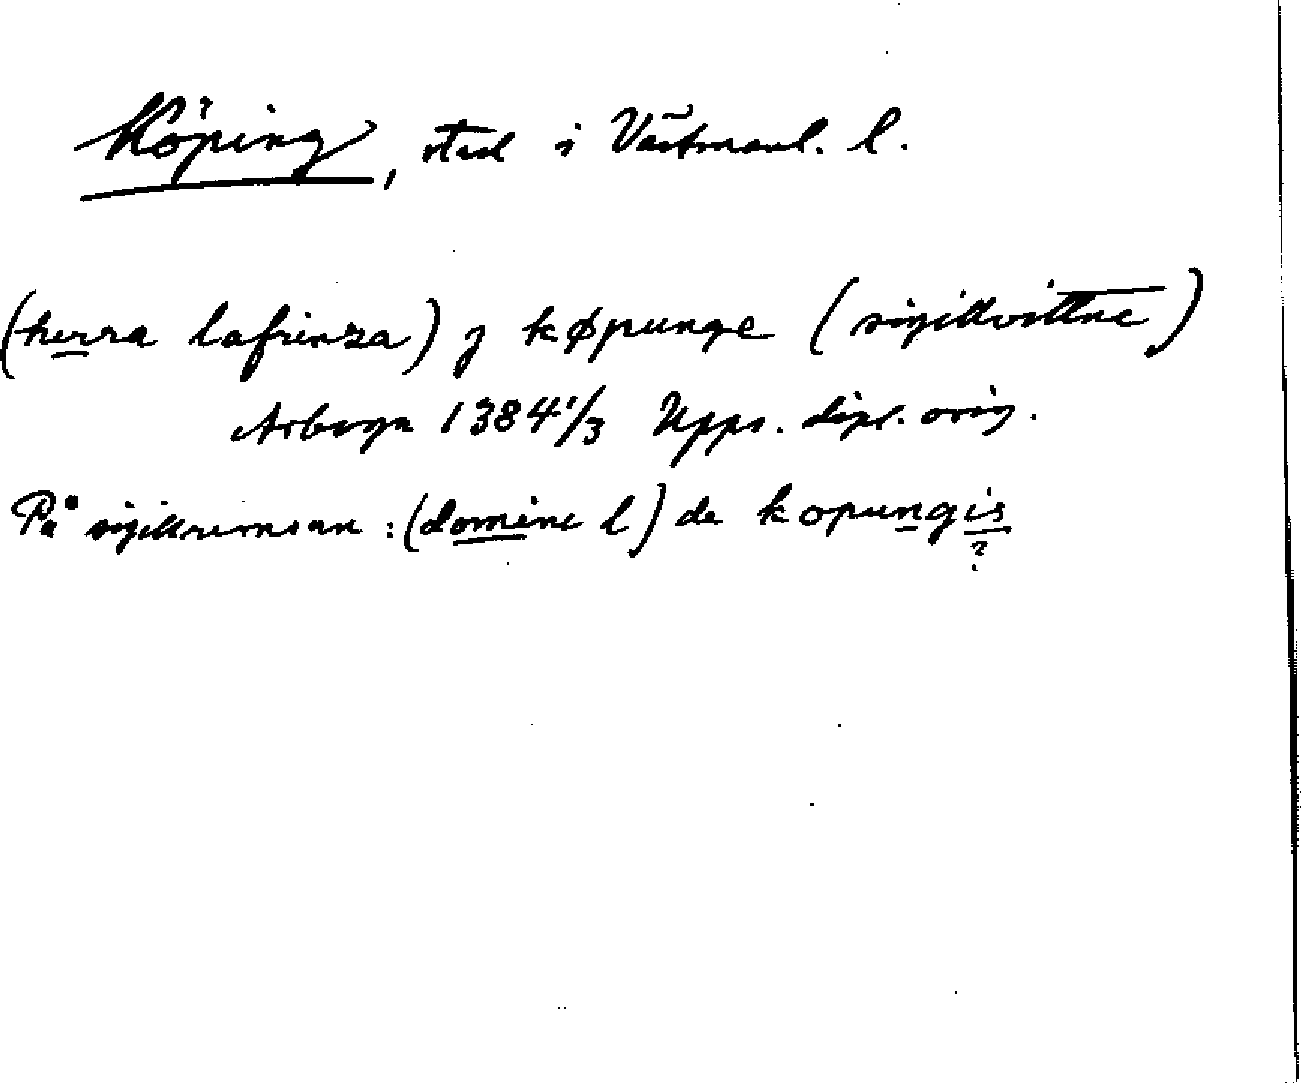 Köping, stad i Västmanl. l.
(herra lafrinza) j køpunge (sigillvittne)
Arboga 1384 1/3 Upps. dipl. orig.
På sigillremsan: (domine l) de kopungis
?